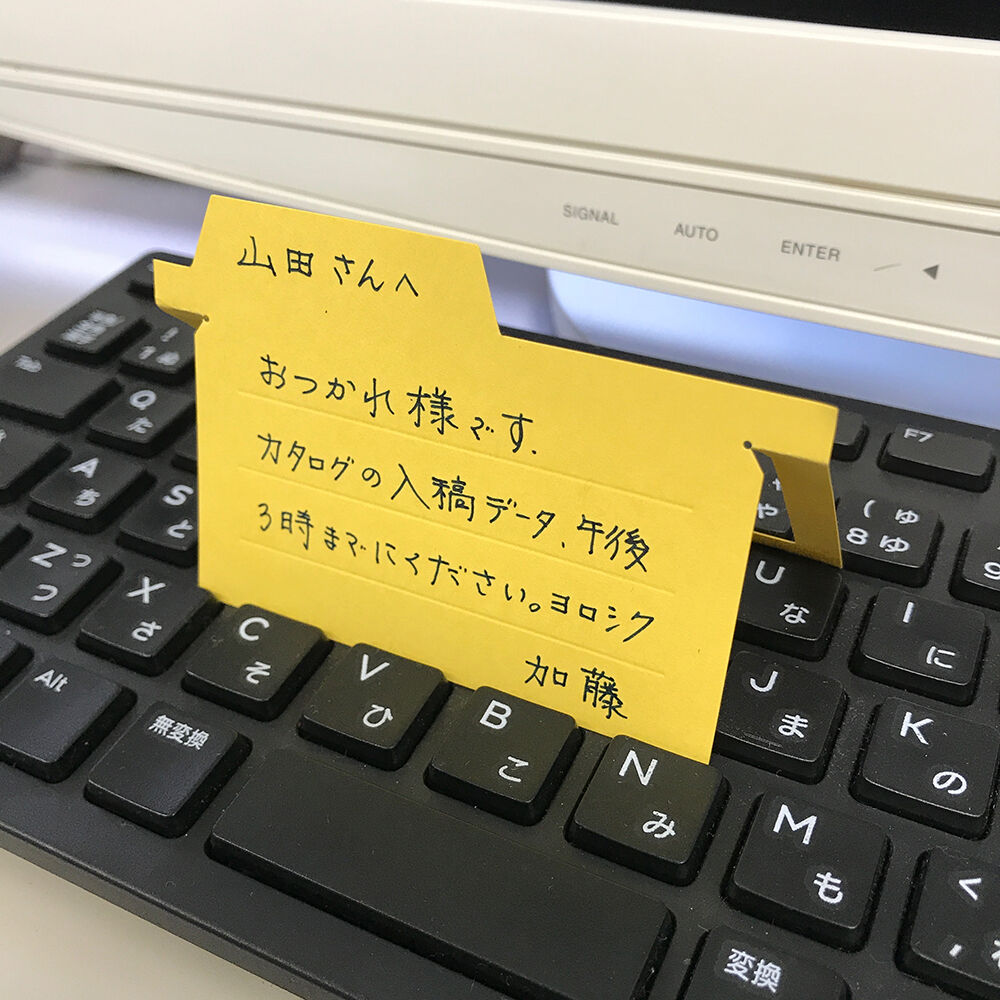 SIGNAL AUTO ENTER
山田さんへ
おつかれ様です.
カタログの入稿データ、午後
3時までにください。ヨロシク
加藤
Tab
Q た
A ち
S と
Z つ っ
X さ
C そ
V ひ
B こ
N み
M も
U な
I に
J ま
K の
F7
( ゅ
8 ゆ
Alt
無変換
変換